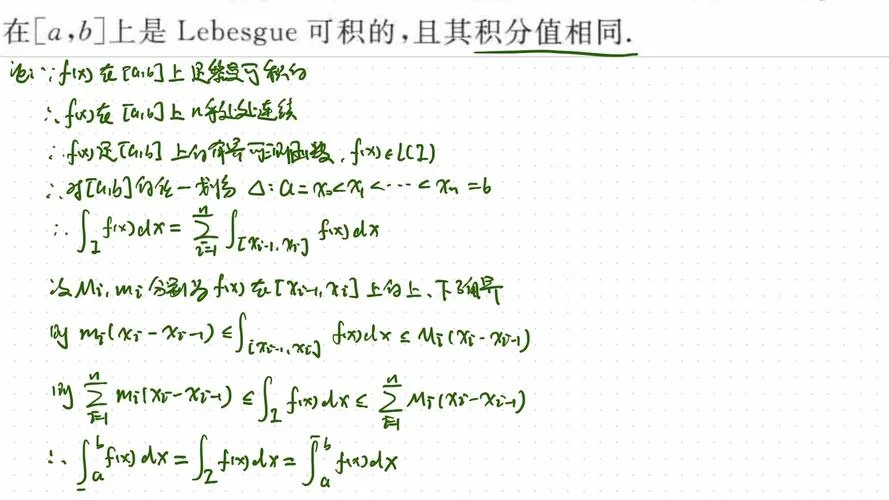 在[a,b]上是 Lebesgue 可积的,且其积分值相同.
证:∵f(x)在[a,b]上是黎曼可积的
∴f(x)在[a,b]上几乎处处连续
∴f(x)是[a,b]上的有界可测函数,f(x)∈L(I)
∴对[a,b]的任一划分 Δ:a=x₀<x₁<⋯<xₙ=b
∴∫_I f(x)dx=∑_{i=1}^{n}∫_{[x_{i-1},x_i]} f(x)dx
设M_i,m_i分别为f(x)在[x_{i-1},x_i]上的上、下确界
则 m_i(x_i-x_{i-1})≤∫_{[x_{i-1},x_i]} f(x)dx≤M_i(x_i-x_{i-1})
则 ∑_{i=1}^{n} m_i(x_i-x_{i-1})≤∫_I f(x)dx≤∑_{i=1}^{n} M_i(x_i-x_{i-1})
∴\underline{∫}_a^b f(x)dx=∫_I f(x)dx=\overline{∫}_a^b f(x)dx